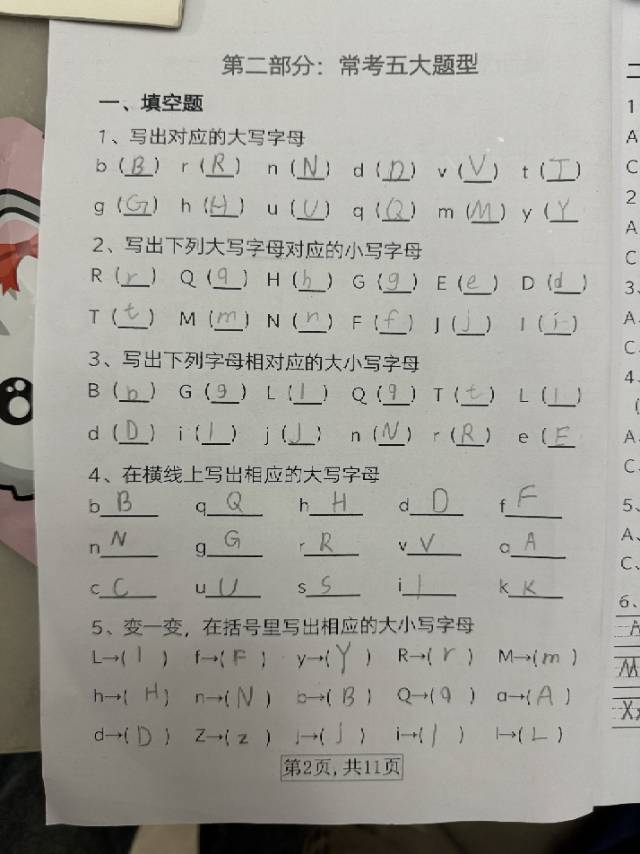 第二部分：常考五大题型
一、填空题
1、写出对应的大写字母
b (B) r (R) n (N) d (D) v (V) t (T)
g (G) h (H) u (U) q (Q) m (M) y (Y
2、写出下列大写字母对应的小写字母
R (r) Q (q) H (h) G (g) E (e) D (d)
T (t) M (m) N (n) F (f) J (j) I (i)
3、写出下列字母相对应的大小写字母
B (b) G (g) L (l) Q (q) T (t) L (l)
d (D) i (I) j (J) n (N) r (R) e (E
4、在横线上写出相应的大写字母
b B q Q h H d D f F
n N g G r R v V a A
c C u U s S i I k K
5、变一变，在括号里写出相应的大小写字母
L→(l) f→(F) y→(Y) R→(r) M→(m)
h→(H) n→(N) b→(B) Q→(q) a→(A)
d→(D) Z→(z) J→(j) i→(I) l→(L)
第2页,共11页
二
1
A
C
2
A
C
3、
A
C
4、
(
A
C
5、
A、
C、
6、